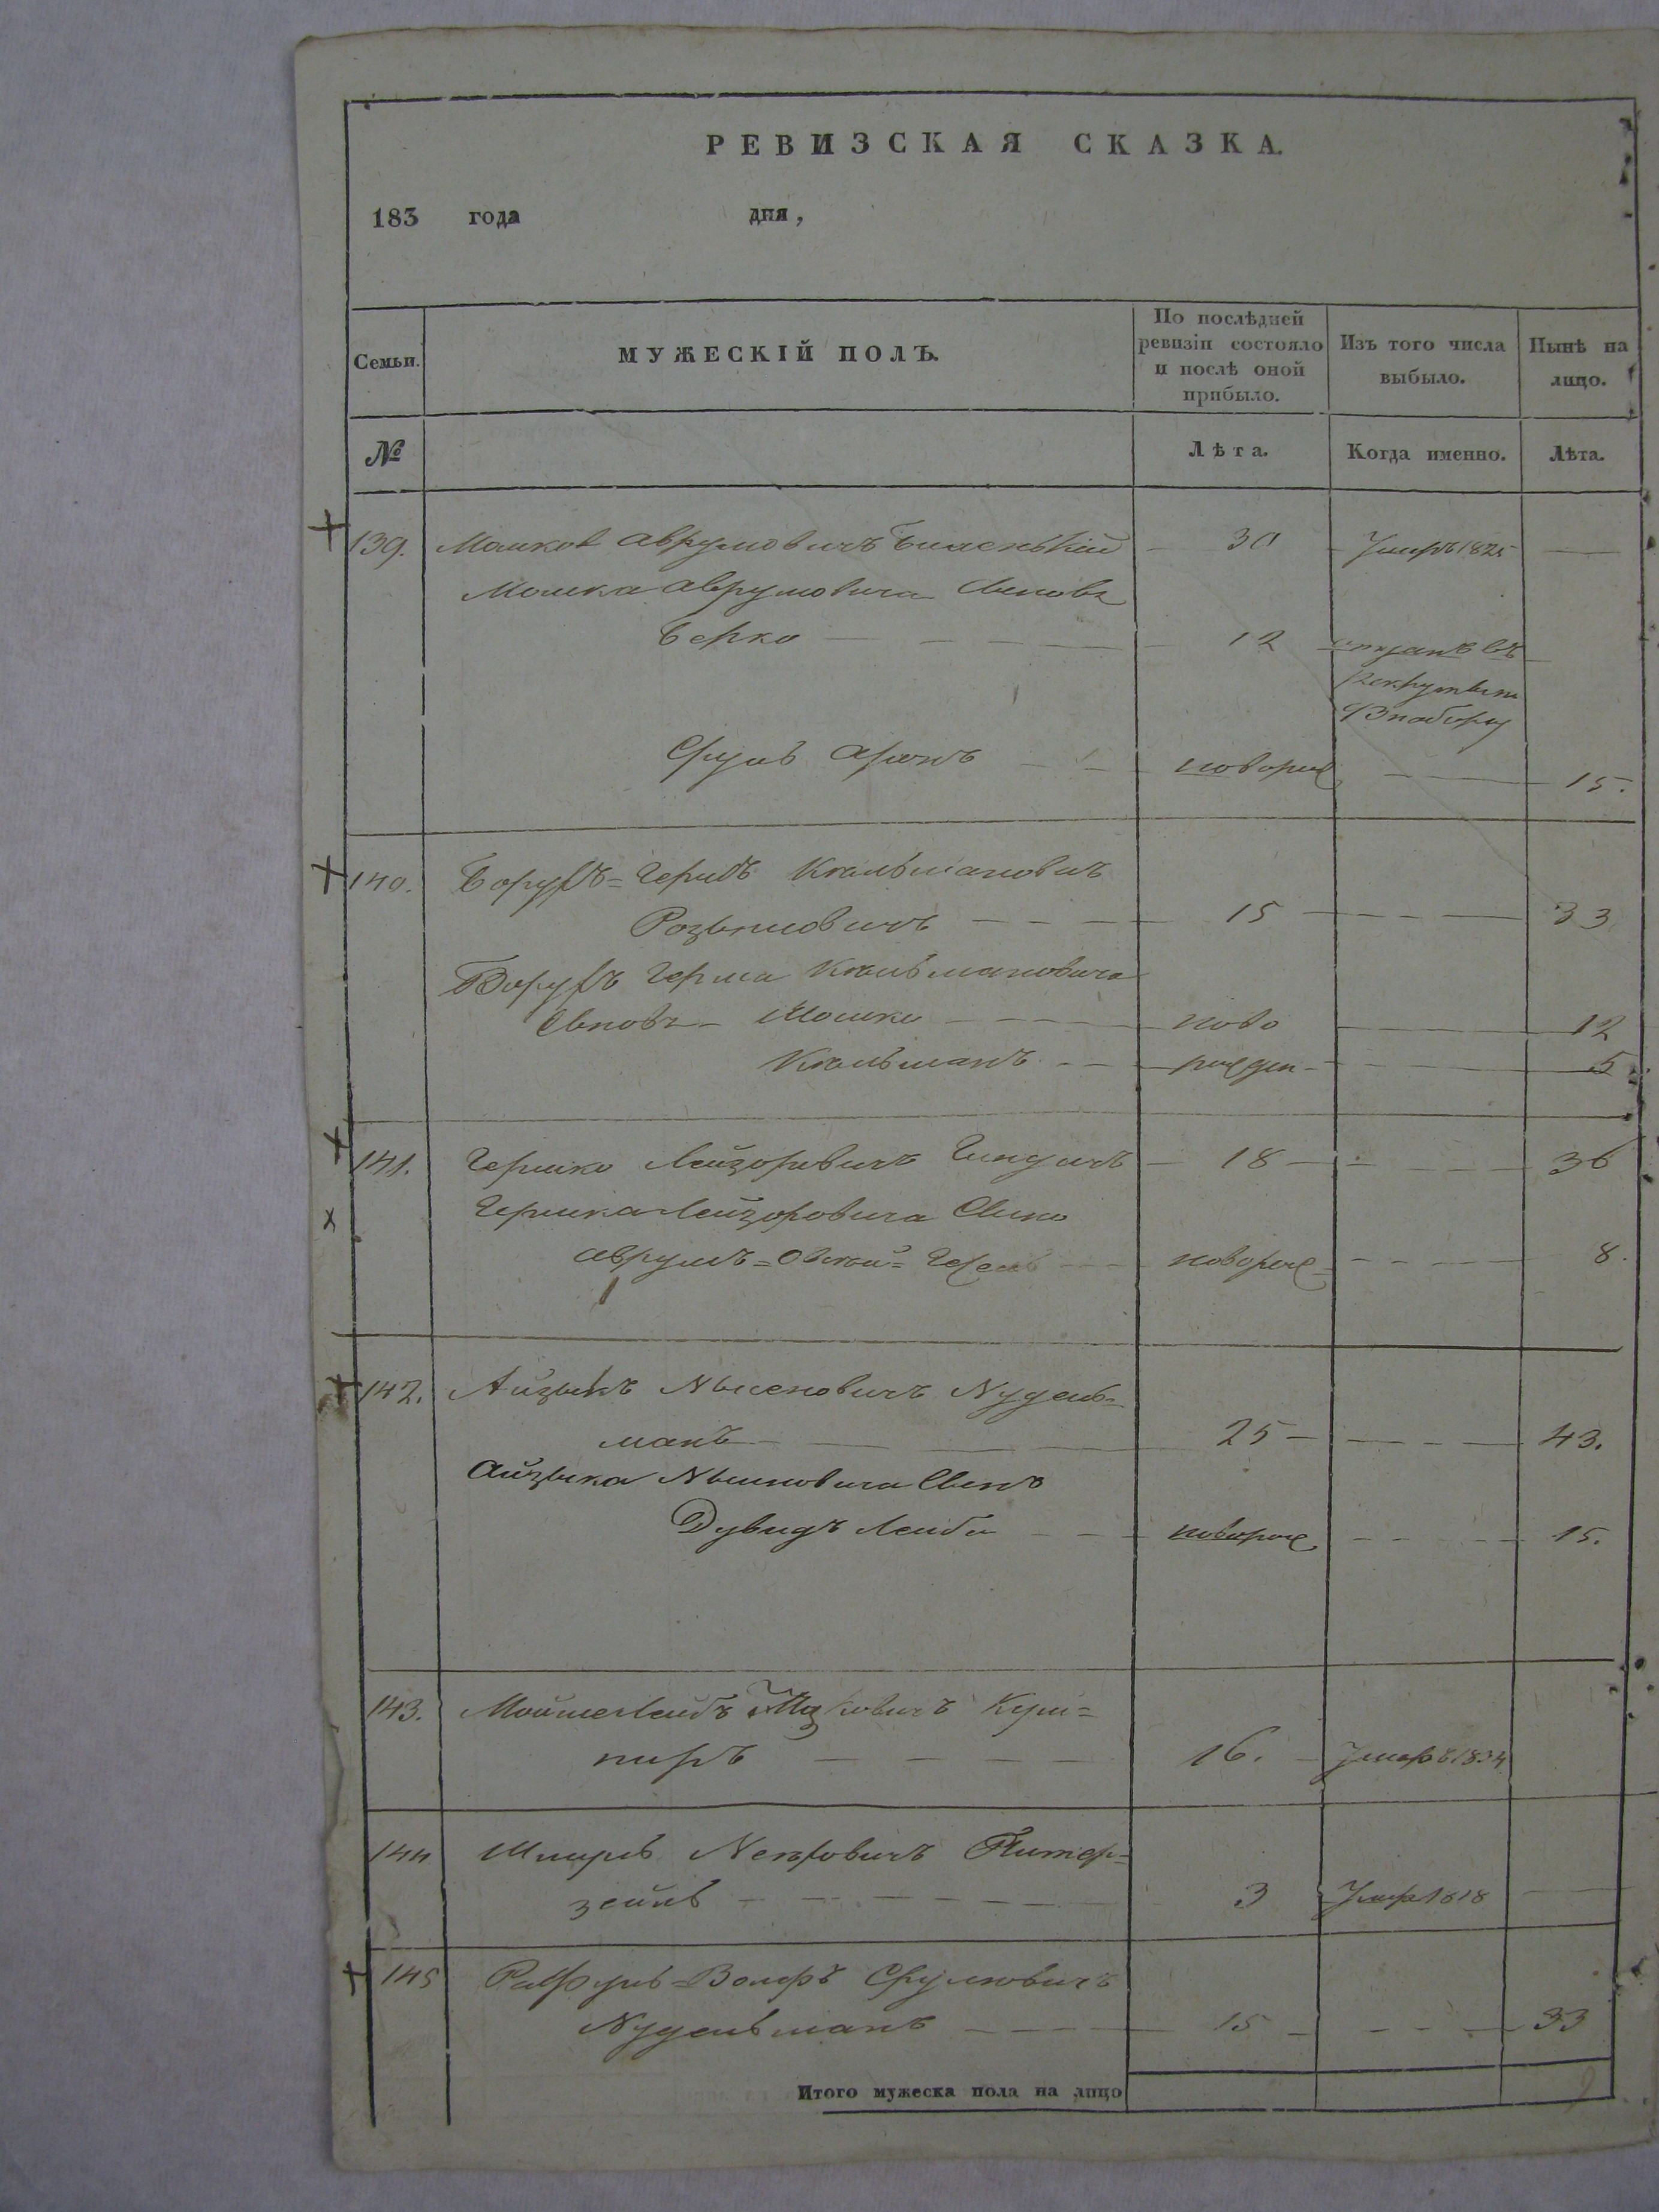 РЕВИЗСКАЯ СКАЗКА.
183 года дня,
Семьи.
МУЖЕСКІЙ ПОЛЪ.
По послѣдней ревизіи состояло и послѣ оной прибыло.
Изъ того числа выбыло.
Нынѣ на лицо.
№
Лѣта.
Когда именно.
Лѣта.
139. Мошко Аврумовичъ 30 Умеръ 1825
Мошка Аврумовича Сыновья
Берко 12 отданъ въ
рекруты
въ наборъ
Сруль Аронъ новорож 15.
140. Борухъ=Гершъ Кельмановичъ
15 33
Борухъ Герша Кельмановича
Сыновья Мошко ново 12
Кельманъ рожден 5
141. Гершко Лейзоровичъ 18 36
Гершка Лейзоровича Сынъ
Аврумъ= новорож 8.
142. Айзыкъ Нысеновичъ Нудель=
манъ 25 43.
Айзыка Нысеновича Сынъ
Дувидъ Лейба новорож 15.
143. Мойше Лейбъ
16. Умеръ 1834
144 Шмуль
зейль 3 Умер 1818
145 Рафуль=Волфъ Сруловичъ
Нудельманъ 15 33
Итого мужеска пола на лицо